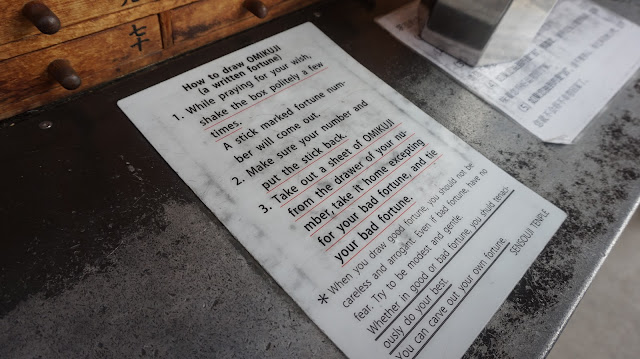 How to draw OMIKUJI
(a written fortune)
1. While praying for your wish,
shake the box politely a few
times.
A stick marked fortune num-
ber will come out.
2. Make sure your number and
put the stick back.
3. Take out a sheet of OMIKUJI
from the drawer of your nu-
mber, take it home excepting
for your bad fortune, and tie
your bad fortune.
* When you draw good fortune, you should not be
careless and arrogant. Even if bad fortune, have no
fear. Try to be modest and gentle.
Whether in good or bad fortune, you shuld tenaci-
ously do your best.
You can carve out your own fortune.
SENSOUJI TEMPLE